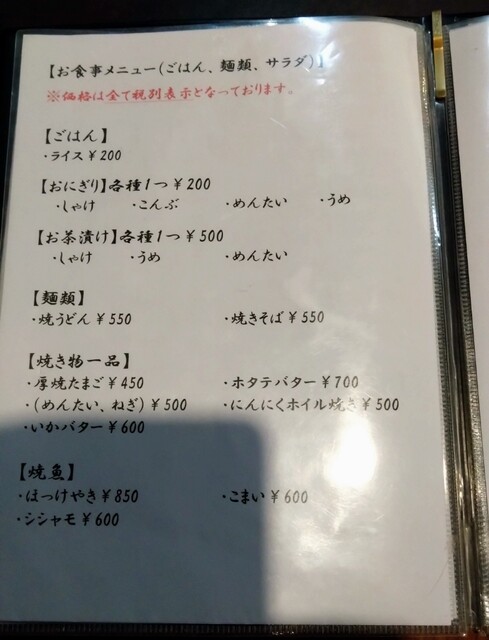 【お食事メニュー(ごはん、麺類、サラダ)】
※価格は全て税別表示となっております。
【ごはん】
・ライス¥200
【おにぎり】各種1つ¥200
・しゃけ ・こんぶ ・めんたい ・うめ
【お茶漬け】各種1つ¥500
・しゃけ ・うめ ・めんたい
【麺類】
・焼うどん¥550 ・焼きそば¥550
【焼き物一品】
・厚焼たまご¥450 ・ホタテバター¥700
・(めんたい、ねぎ)¥500 ・にんにくホイル焼き¥500
・いかバター¥600
【焼魚】
・ほっけやき¥850 ・こまい¥600
・シシャモ¥600